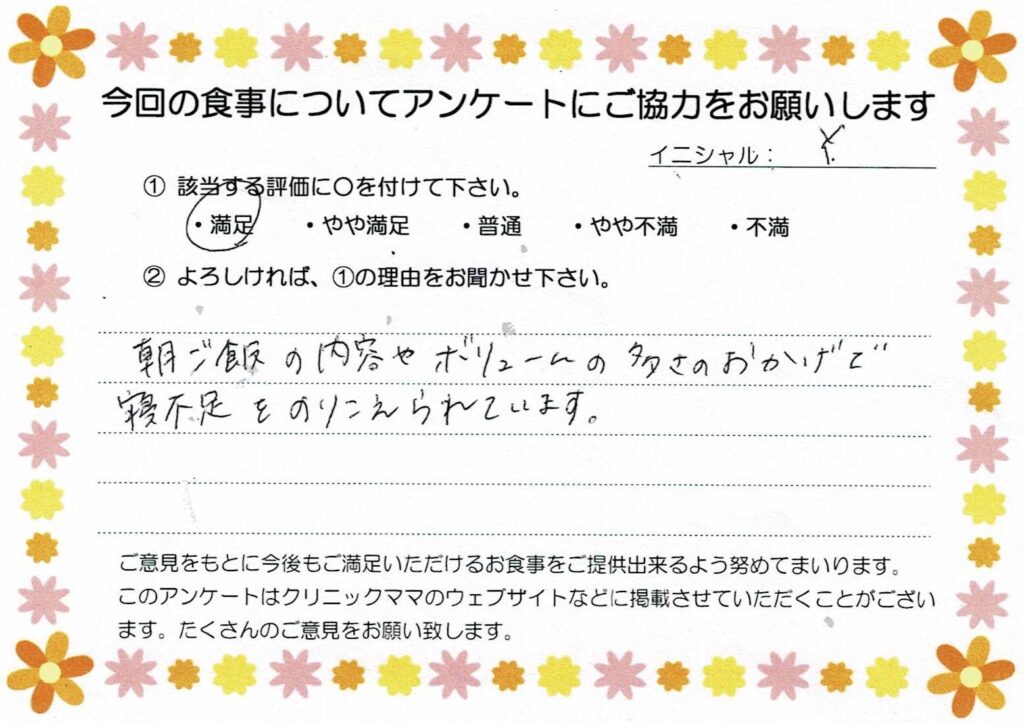 今回の食事についてアンケートにご協力をお願いします
イニシャル： Y.
① 該当する評価に〇を付けて下さい。
・満足 ・やや満足 ・普通 ・やや不満 ・不満
② よろしければ、①の理由をお聞かせ下さい。
朝ご飯の内容やボリュームの多さのおかげで
寝不足をのりこえられています。
ご意見をもとに今後もご満足いただけるお食事をご提供出来るよう努めてまいります。
このアンケートはクリニックママのウェブサイトなどに掲載させていただくことがござい
ます。たくさんのご意見をお願い致します。